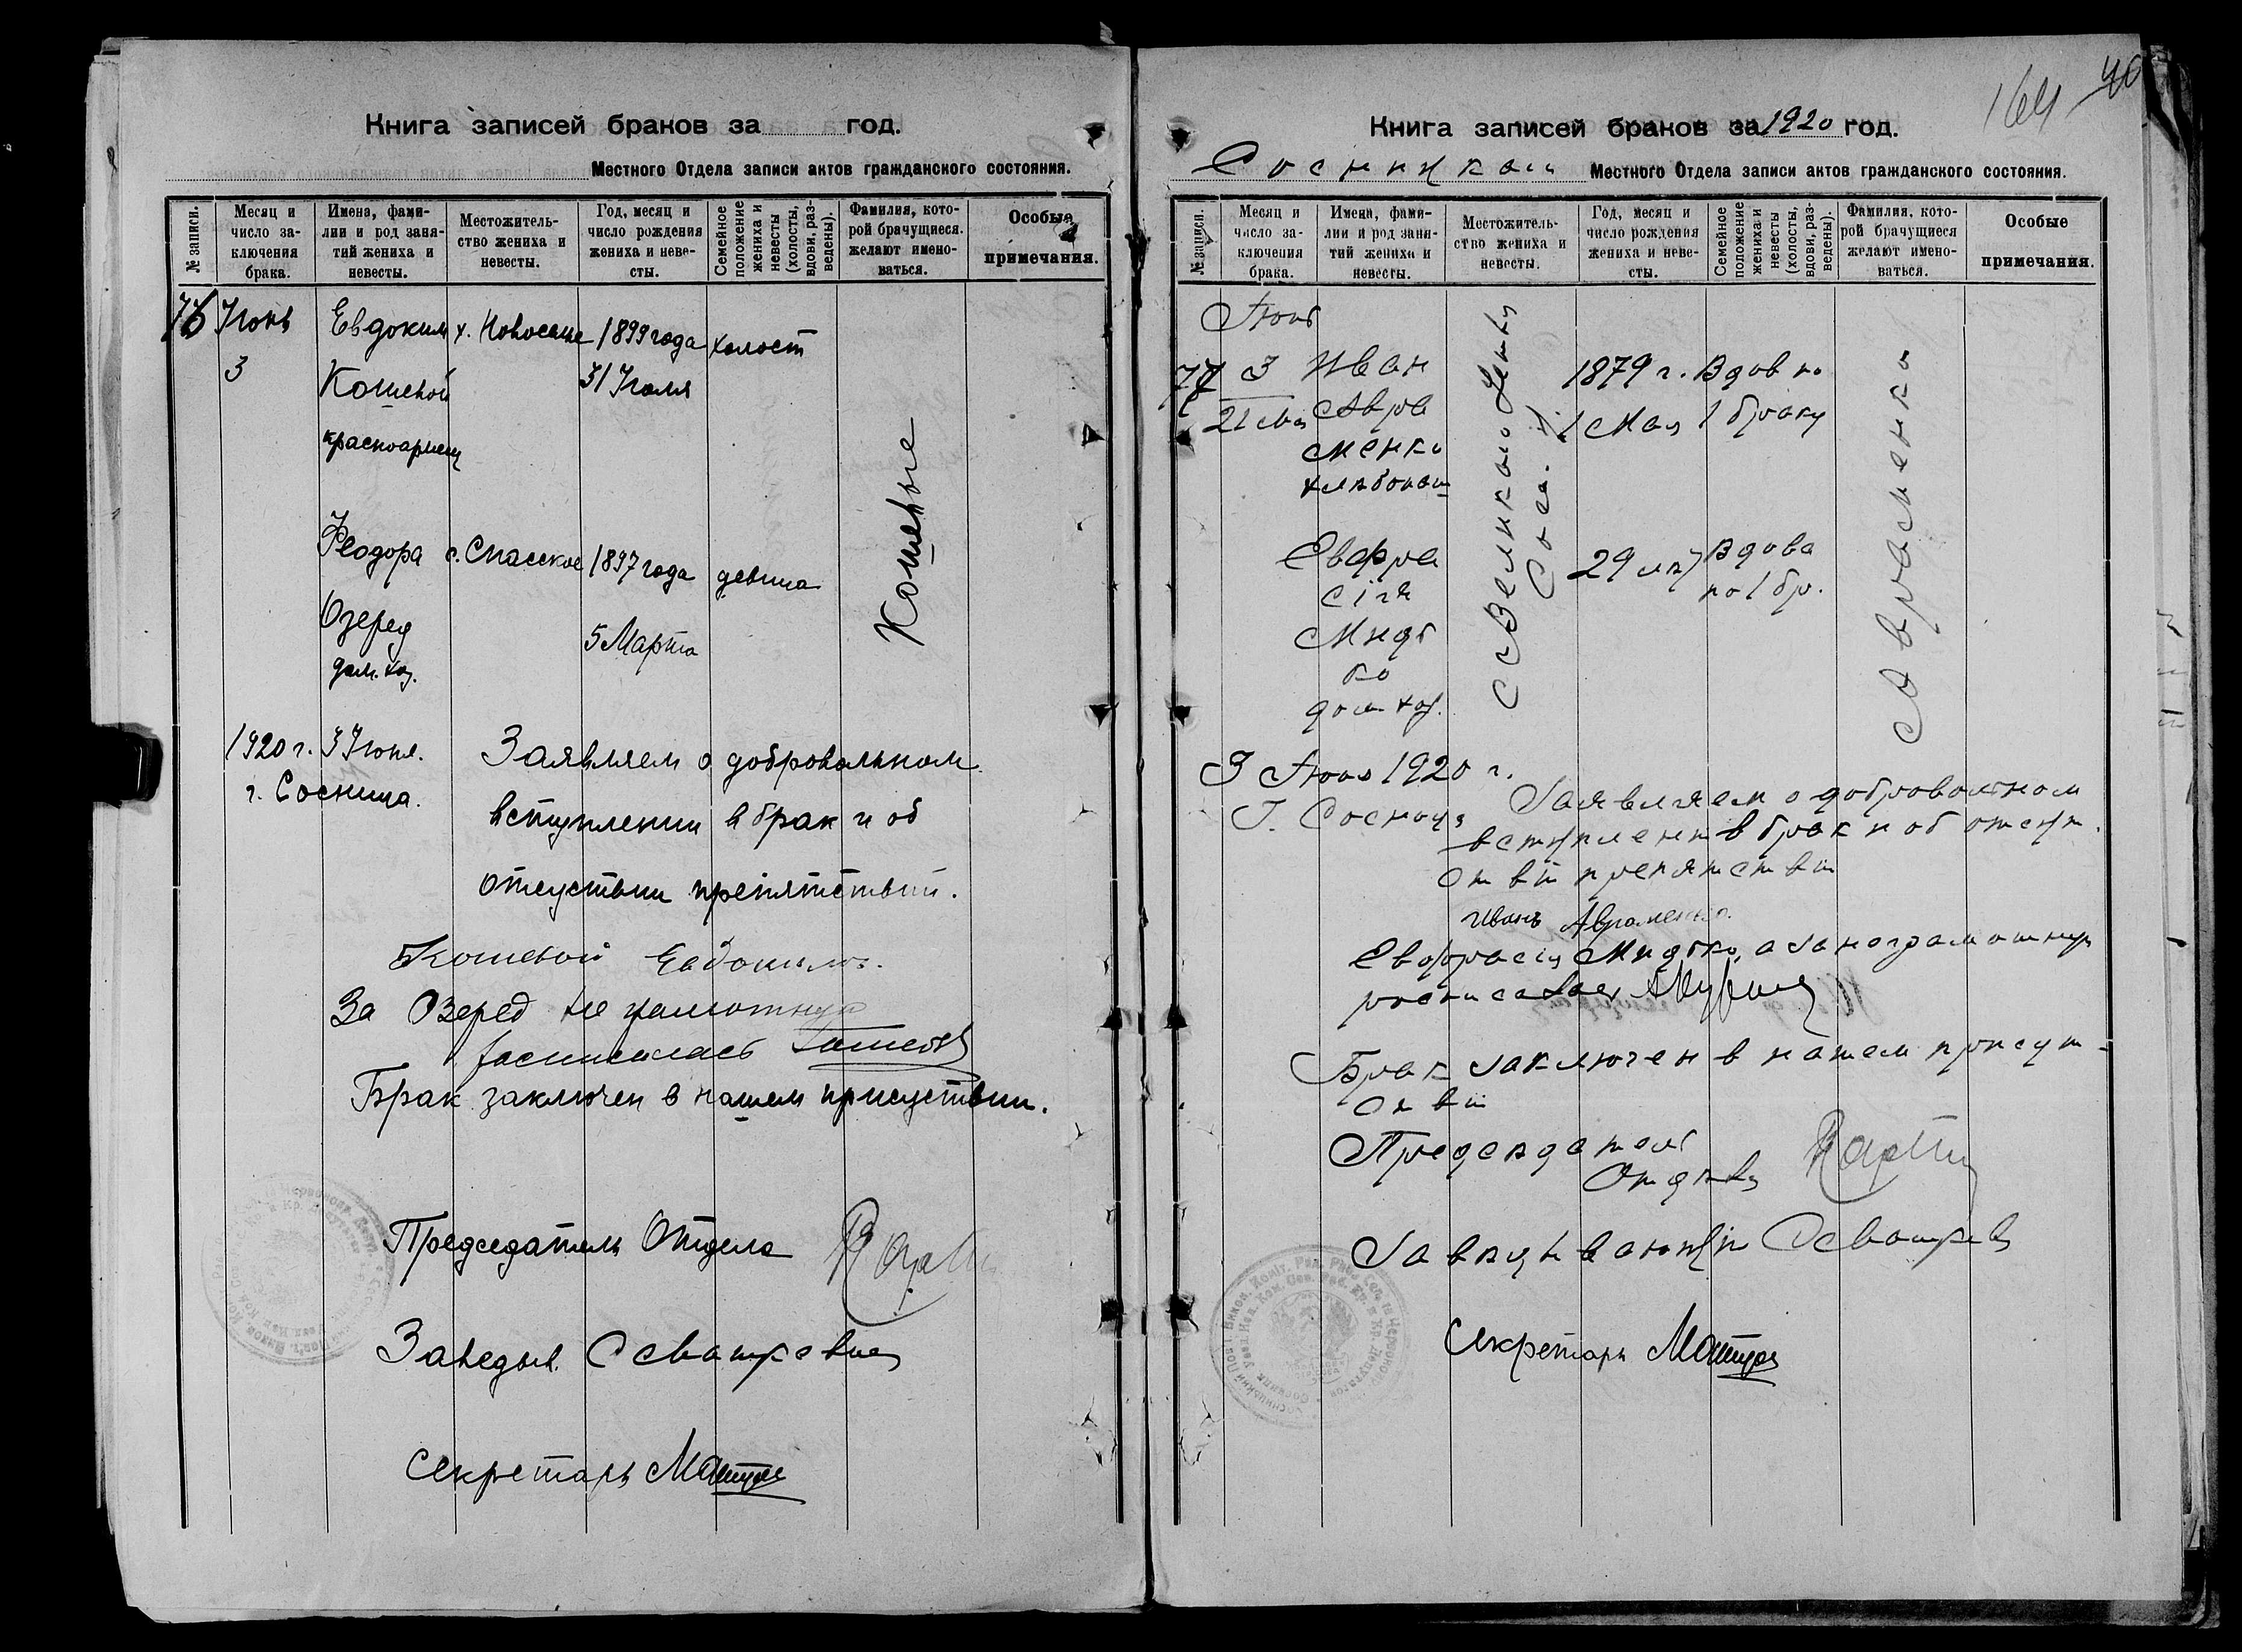 Книга записей браков за год.
Местного Отдела записи актов гражданского состояния.
№ записи.
Месяц и число заключения брака.
Имена, фамилии и род занятий жениха и невесты.
Местожительство жениха и невесты.
Год, месяц и число рождения жениха и невесты.
Семейное положение жениха и невесты (холосты, вдовы, разведены).
Фамилия, которой брачущиеся желают именоваться.
Особые примечания.
76 Июнь Евдоким х. Новоселье 1899 года холост
3 Кошевой 31 Июля
красноармеец
Кошевые
Феодора с. Спасское 1897 года девица
Озеред 5 Марта
дом. хоз.
1920 г. 3 Июня. Заявляем о добровольном
г. Сосница.
вступлении в брак и об
отсуствии препятствий.
Кошевой Евдоким.
За Озеред не грамотную
расписалась
Брак заключен в нашем присуствии.
Председатель Отдела
Заведыв.
Секретарь
164 40
Книга записей браков за 1920 год.
Сосницкой Местного Отдела записи актов гражданского состояния.
№ записи.
Месяц и число заключения брака.
Имена, фамилии и род занятий жениха и невесты.
Местожительство жениха и невесты.
Год, месяц и число рождения жениха и невесты.
Семейное положение жениха и невесты (холосты, вдовы, разведены).
Фамилия, которой брачущиеся желают именоваться.
Особые примечания.
Июнь
77 3 Иван 1879 г. Вдов по
21 Авра 1 Мая 1 браку
менко
хлебопаш
Авраменко
Евфро 29 Вдова
сiя по 1 бр.
дом хоз.
3 Июня 1920 г.
Г. Сосница Заявляем о добровольном
вступлении в брак и об отсут.
ствii препятствii
Иванъ Авраменко.
росписался
Брак заключен в нашем присут-
ствii
Председатель
Отдела
Заведывающiй
Секретарь